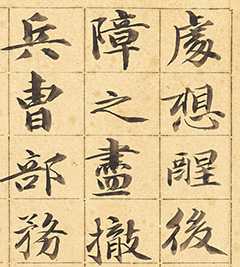 處想醒後
障之盡撤
兵曹部務